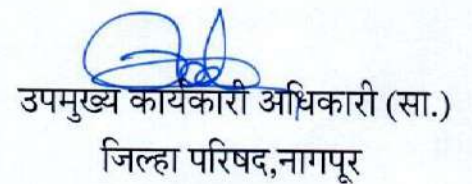 उपमुख्य कार्यकारी अधिकारी (सा.)
जिल्हा परिषद,नागपूर